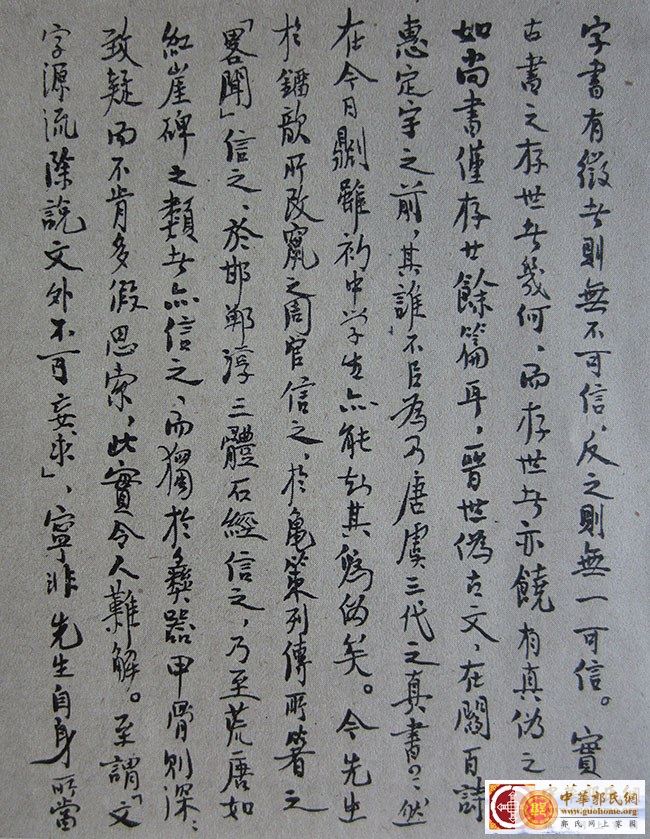 字書有徵者則無不可信,反之則無一可信。實
古書之存世者幾何、而存世者亦饒有真偽之
如尚書僅存廿餘篇耳,晉世偽古文,在閻百詩
惠定宇之前,其誰不目為乃唐虞三代之真書?然
在今日,則雖初中学生亦能知其為偽矣。今先生
於鐻歆所改竄之周官信之、於龜策列傳所箸之
「畧聞」信之、於邯鄲淳三體石經信之,乃至荒唐如
紅崖碑之類者亦信之、而獨於彝器甲骨則深、
致疑而不肯多假思索,此實令人難解。至謂「文
字源流除說文外不可妄求」、寧非先生自身所當
中華郭氏網
www.guohome.org
郭氏网上家園